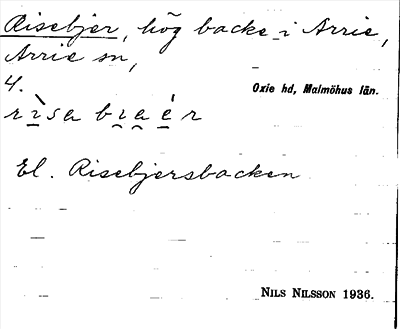 Risebjer, hög backe i Arrie,
Arrie sn,
4.
Oxie hd, Malmöhus län.
rìsa bıaér
El. Risebjersbacken
NILS NILSSON 1936.